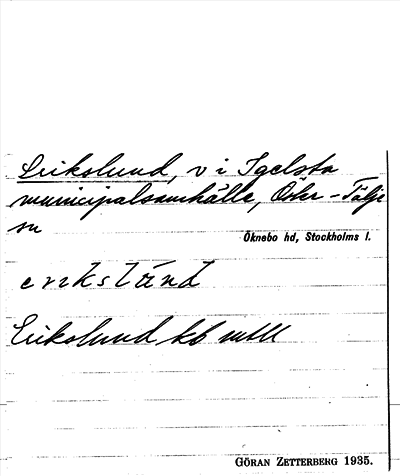 Erikslund, v i Igelsta
municipalsamhälle, Öster-Tälje
sn
Öknebo hd, Stockholms l.
erikslund
Erikslund kb mtll
GÖRAN ZETTERBERG 1935.